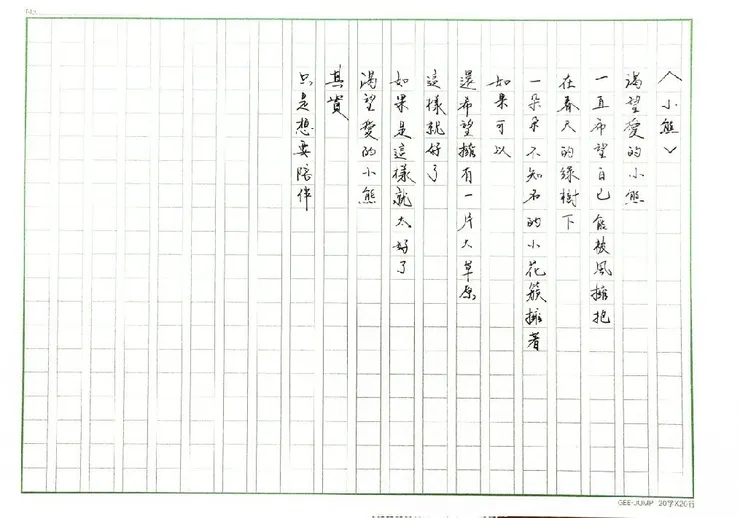 〈小熊〉
渴望愛的小熊
一直希望自己能被風擁抱
在春天的綠樹下
一朵朵不知名的小花簇擁著
如果可以
還希望擁有一片大草原
這樣就好了
如果是這樣就太好了
渴望愛的小熊
其實
只是想要陪伴
GEE-JUMP 20字X20行